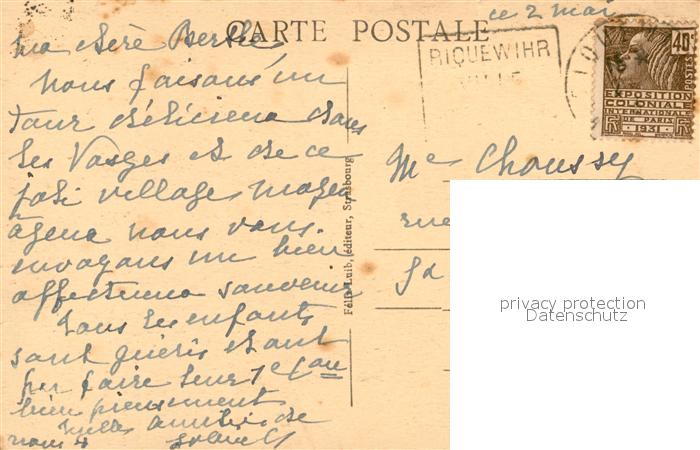 CARTE POSTALE
ce 2 mai
RIQUEWIHR
VILLE
40c
POSTES
EXPOSITION
COLONIALE
INTERNATIONALE
DE PARIS
1931
ma chère Berthe
nous faisons un
tour délicieux dans
les Vosges et de ce
joli village moyen
ageux nous vous
envoyons un bien
affectueux souvenir
Tous les enfants
sont guéris et ont
pu faire leur 1e Con
bien pieusement
mille amitiés de
nous 4
Me Choussy
rue
Félix Luib, éditeur, Strasbourg
privacy protection
Datenschutz